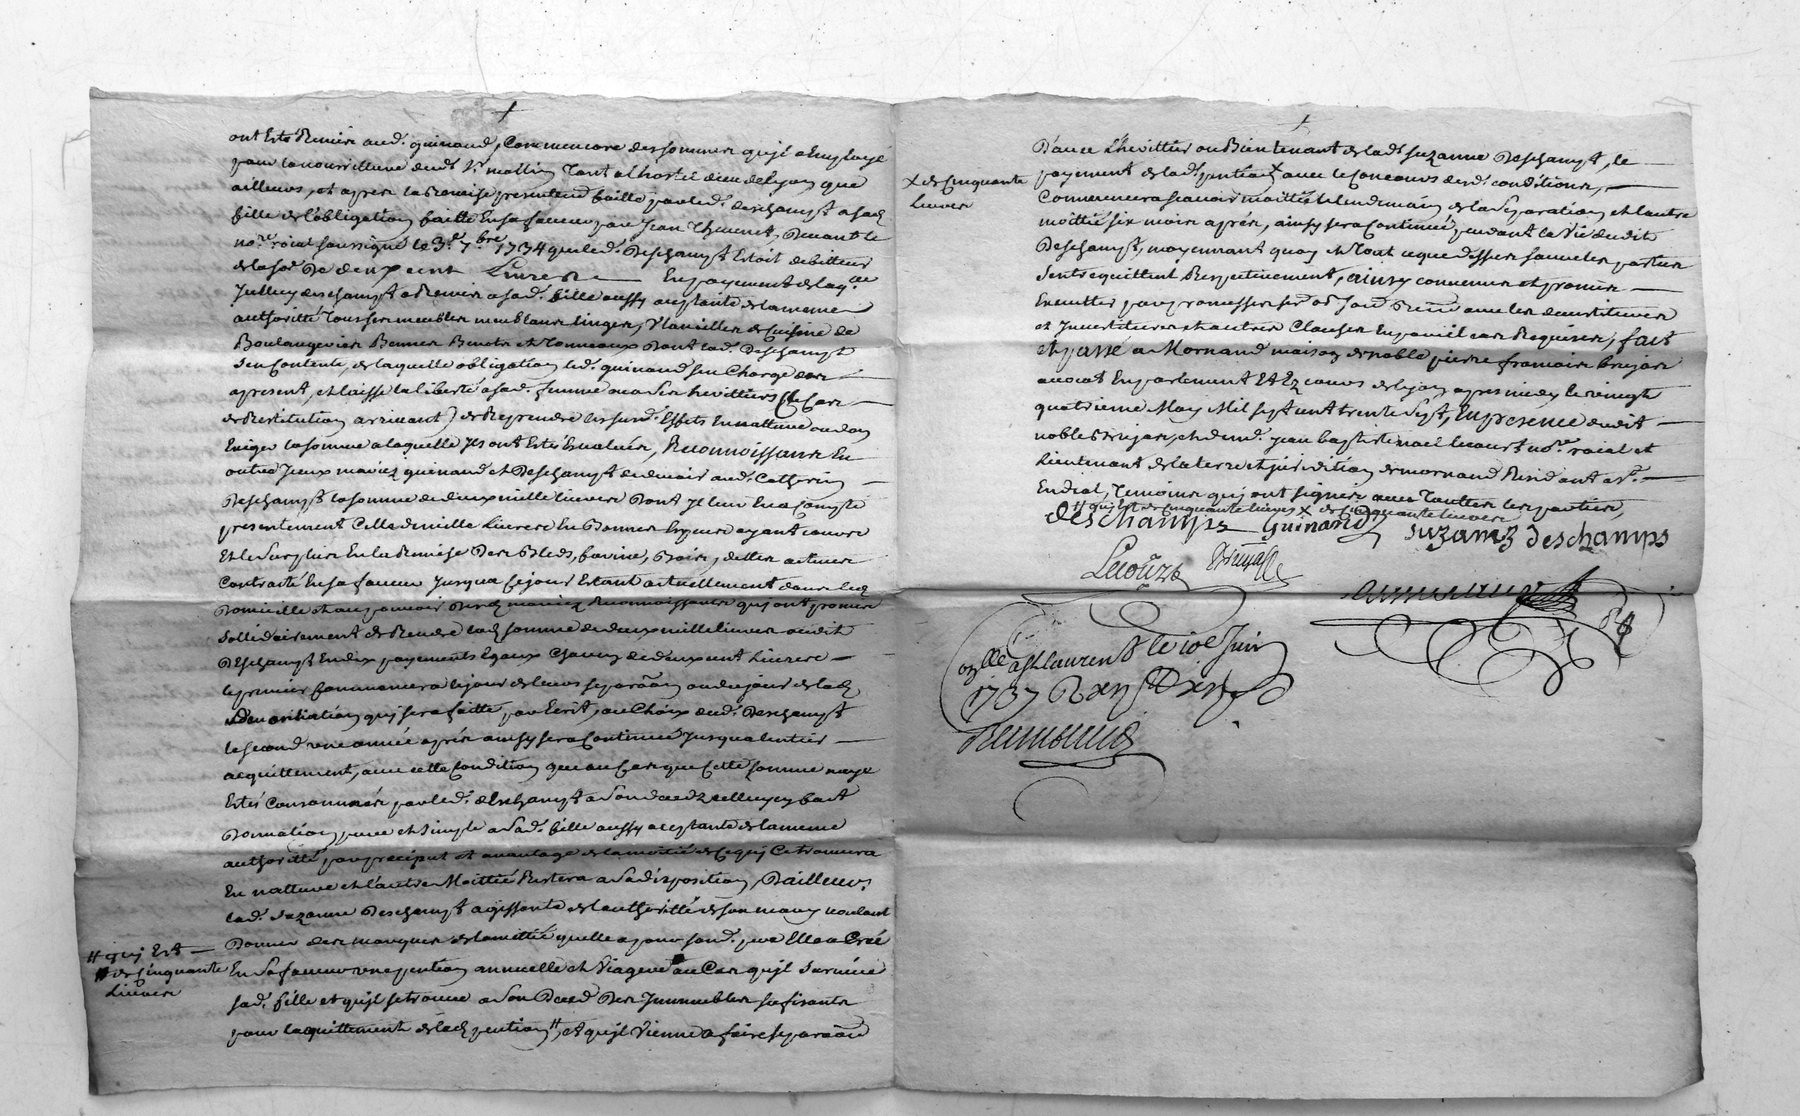 ont Estés Remise aud. guinand, Comme encore des sommes qu'jl a Employé
pour la nourritture dud. Sr. mollin Tant a l'hostel dieu de Lyon que
ailleurs, et apres la Remise presentement faitte par led. deschamps a sad.
fille de l'obligation faitte En sa faveur par Jean Thevenet, Devant le
nore. roial soussigné le 3e. 7bre 1734 que led. Deschamps Estoit debitteur
de la so. De deux cent Livres En payement de laqlle
Julluy deschamps a Remis a sad. fille aussy aceptante de la meme
authorité Tous ses meubles meublans linges, Vtancilles de Cuisine de
Boulangeries Bennes Benots et Tonneaux Dont lad. Deschamps
s'en Contente, de laquelle obligation led. guinand s'en Charge des
apresent, et laisse la liberté a sad. femme ou a ses herittiers (le Cas
de Restitution arrivant) de Reprendre les susd. Effets En nature ou d'en
Exiger la somme a laquelle Jls ont Estés Evalués, Reconnoissance En
outre Jceux mariez guinand et Deschamps de devoir aud. Catherin
Deschamps la somme de deux mille livres Dont Jl leur En a Compté
presentement Celle de mille Livres En Bonnes Especes ayant cours
Et le Surplus En la Remise Des Bleds, farine, Bois, dettes actives
Contracté En sa faveur Jusqua ce jour Estant actuellement dans led.
Domicille et au pouvoir Desd. mariez Reconnoissants qui ont promis
Sollidairement de Rendre lad. somme de deux mille livres audit
Deschamps En dix payements Egaux Chacun de deux cent Livres
le premier Commencera le jour de leurs separaon ou du jour de lad.
Denontiation qui sera faitte par Ecrit, au Choix dud. Deschamps
le second une année après ainsy sera Continué Jusqua l'entier
acquittement, avec cette Condition que au Cas que Cette somme naye
Estés Consommées par led. deschamps a son deceds celluycy fait
Donnation pure et simple a sad. fille aussy aceptante de la meme
authorité, par preciput et avantage de la moitié de ce qui Ce trouvera
En nature et l'autre Moittié Restera a sa disposition, D'ailleurs
lad. suzanne Deschamps agissante de l'authorité de son mary voulant
Donner des marques de lamittié quelle a pour sond. pere Elle a Créé
En sa faveur une pention annuelle et Viagere au Cas qu'jl survive
sad. fille et qu'jl se trouve a son Deced Des Jmmeubles sufisants
pour laquittement de lad. pention #, et qu'jl Vienne a faire separaon
# qui Est
# de Cinquante
Livres
D'avec l'herittier ou Bientenant de lad. suzanne Deschamps, le
payement de lad. pention X avec le Concours desd. conditions,
Commencera scavoir moittié le lendemain de la separation et l'autre
moittié six mois après, ainsy sera Continué pendant la Vie dudit
Deschamps, moyennant quoy et Tout ce que dessus sauve les parties
s'entrequittent Respectivement, ainsy convenu et promis
Executter par promesses ser. ob. soum. Renon. avec les devestitures
et Jnvestitures et autres Clauses En pareil cas Requises, fait
et passé a Mornand maison de noble pierre francois brujas
avocat En parlement Et Ez cours de Lyon apres midy le vingt
quatrieme May Mil sept cent trente sept, En presence dudit
noble Brujas, et de me. jean baptiste noel lecourt nore. roial et
Lieutenant de la terre et jurisdition de mornand Residant as.
Endroit, Temoins qui ont signés avec Toutes les parties,
# qui Est de Cinquante Livres X de Cinquante Livres
X de Cinquante
Livres
deschamps Guinand suzanne deschamps
Lecourt Brujas
Collé a St Laurent le 10e Juin
1737